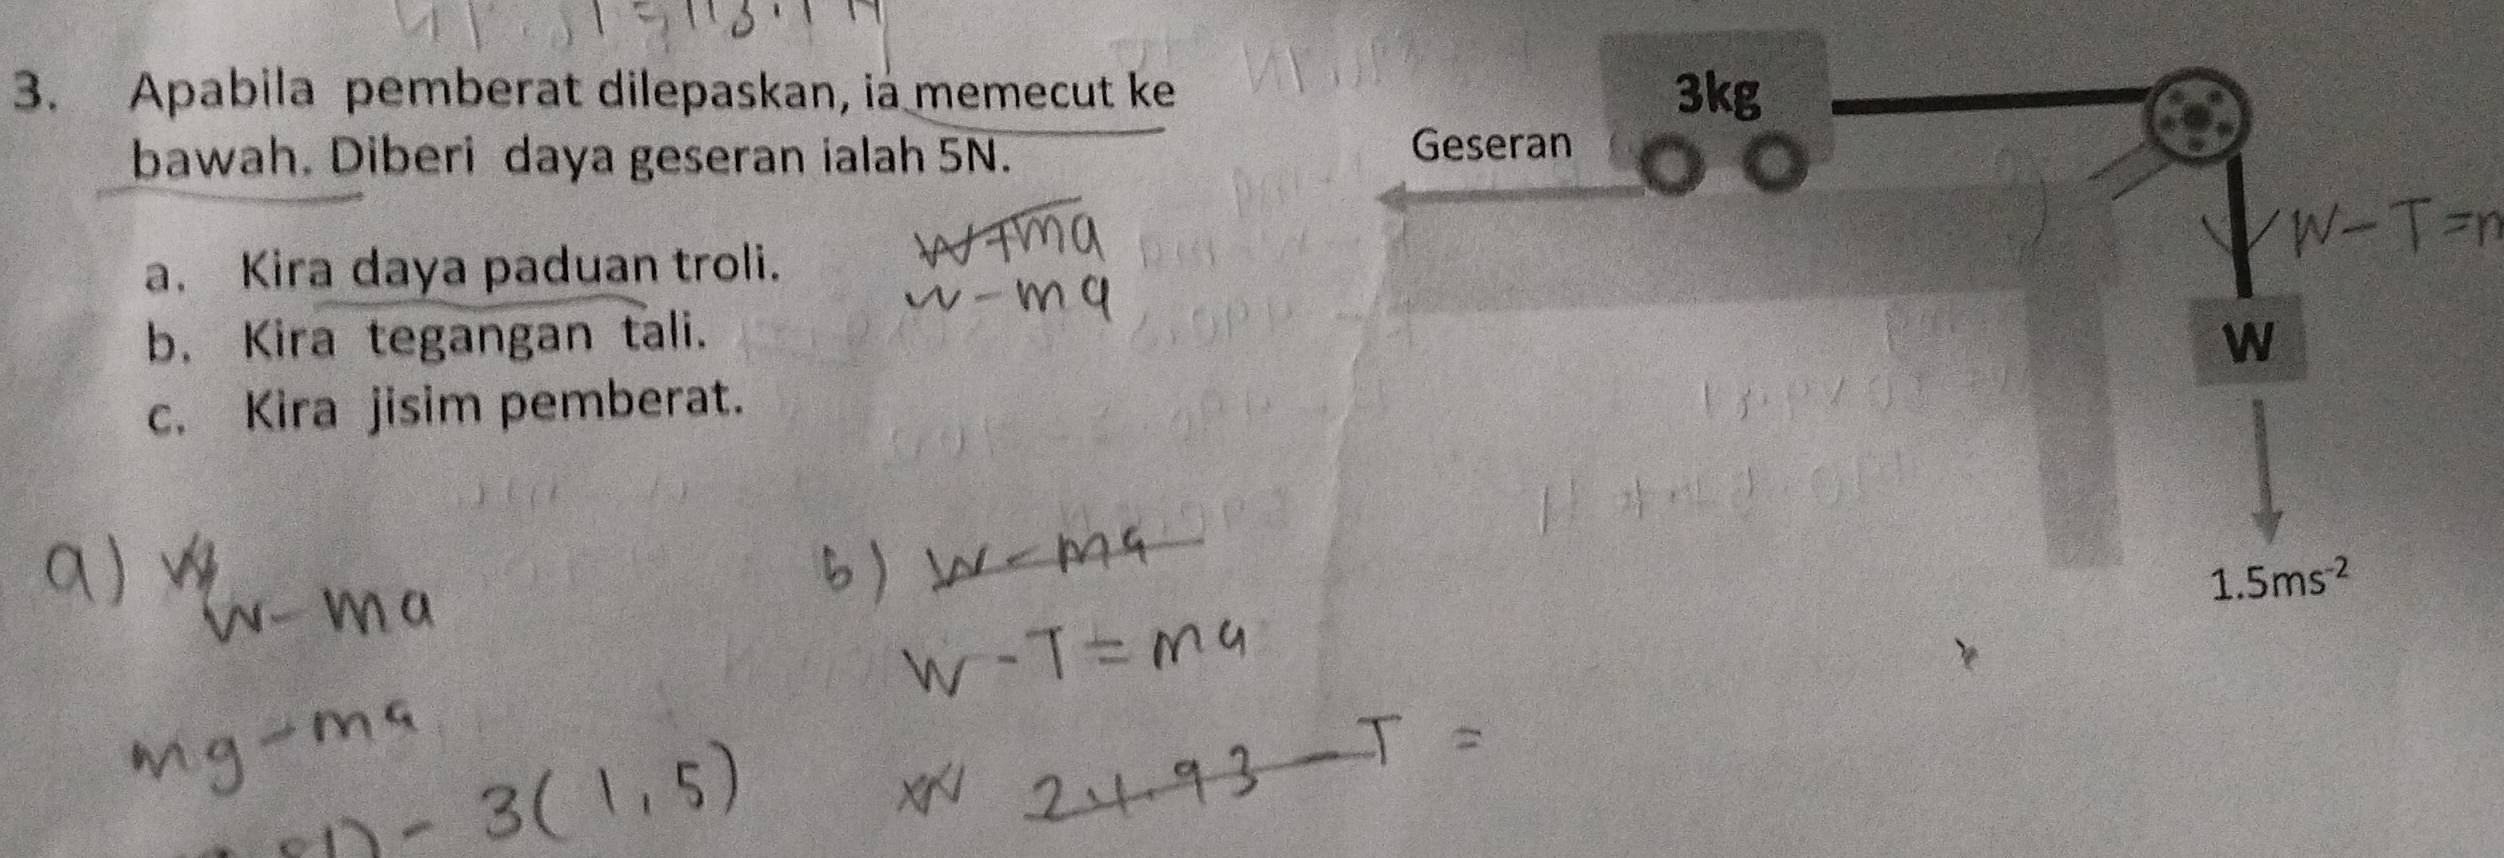 3. Apabila pemberat dilepaskan, ia memecut ke
bawah. Diberi daya geseran ialah 5N.
a. Kira daya paduan troli.
b. Kira tegangan tali.
c. Kira jisim pemberat.
3kg
Geseran
W
1.5ms⁻²
W-T=
W+ma
w-ma
a) W
W-ma
mg-ma
- 3(1,5)
b) W-ma
W-T=ma
24.93-T =